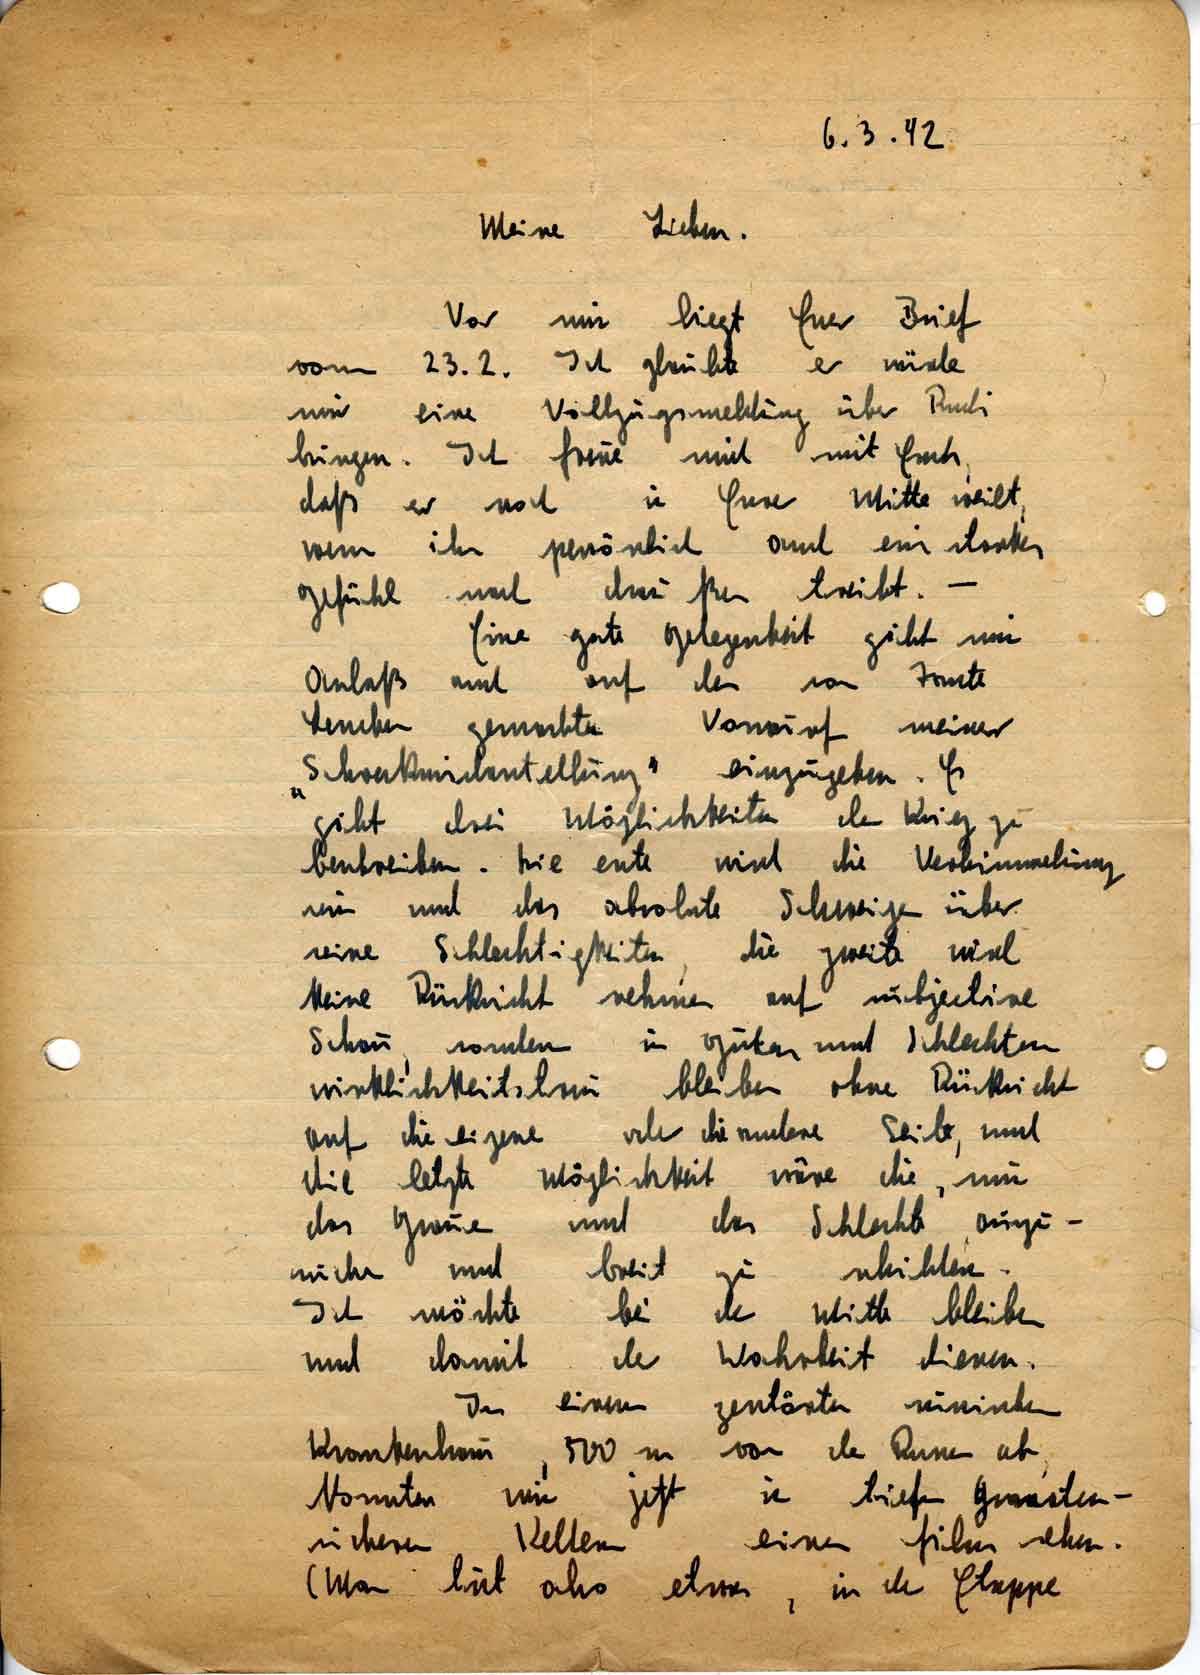 6.3.42
Meine Lieben.
Vor mir liegt Euer Brief
vom 23.2. Ich glaubte er würde
mir eine Vollzugsmeldung über Rudi
bringen. Ich freue mich mit Euch,
daß er noch in Eurer Mitte weilt,
wenn ihn persönlich auch ein starkes
Gefühl nach draußen treibt. —
Eine gute Gelegenheit gibt mir
Anlaß auch auf den von Tante
gemachten Vorwurf meiner
„Schwarkmichdarstellung" einzugehen. Es
gibt drei Möglichkeiten den Krieg zu
beschreiben. Die erste wird die Verhimmelung
sein und das absolute Schweigen über
seine Schlechtigkeiten, die zweite wird
keine Rücksicht nehmen auf subjective
Schau, sondern im Guten und Schlechten
wirklichkeitstreu bleiben ohne Rücksicht
auf die eigene oder die andere Seite, und
die letzte Möglichkeit wäre die, nur
das Graue und das Schlechte auszu-
suchen und breit zu schildern.
Ich möchte bei der Mitte bleiben
und damit der Wahrheit dienen.
In einem zerstörten russischen
Krankenhaus, 500 m von den Russen ab,
konnten wir jetzt in tiefen Granaten-
sicheren Kellern einen Film sehen.
(Man tut also etwas, in der Etappe